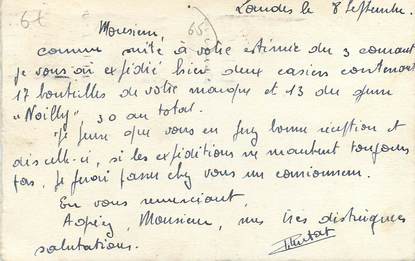 61
Landes le 8 Septembre.
Monsieur, 65
comme suite à votre estimée du 3 courant
je vous ai expédié hier deux casiers contenant
17 bouteilles de votre marque et 13 du genre
"Noilly", 30 au total.
Je pense que vous en ferez bonne réception et
dis celle-ci, si les expéditions ne manquent toujours
pas, je ferai passer chez vous un camionneur.
En vous remerciant,
Agréez, Monsieur, mes très distinguées
salutations.